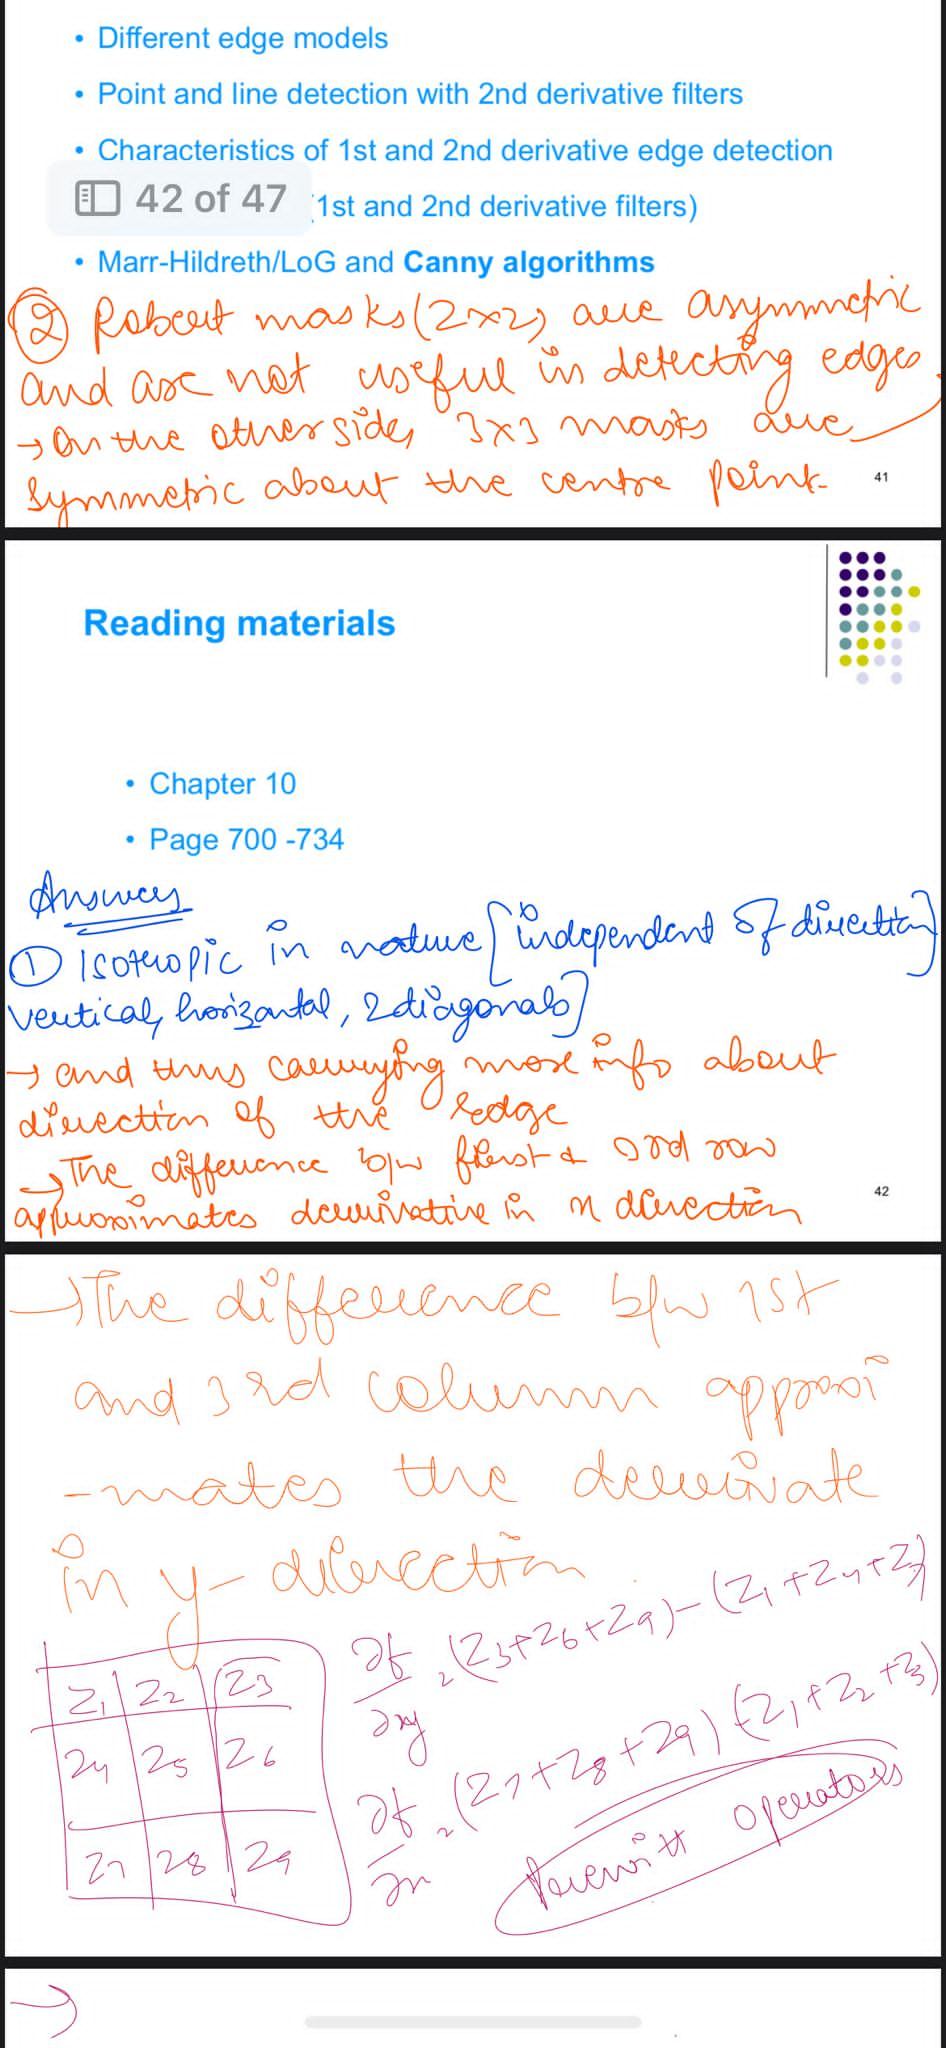 • Different edge models
• Point and line detection with 2nd derivative filters
• Characteristics of 1st and 2nd derivative edge detection
42 of 47 (1st and 2nd derivative filters)
• Marr-Hildreth/LoG and Canny algorithms
② Robert masks (2×2) are asymmetric
and are not useful in detecting edges.
→ On the other side, 3×3 masks are
symmetric about the centre point.
41
Reading materials
• Chapter 10
• Page 700 -734
Answers
① Isotropic in nature [independent of direction]
vertical, horizontal, 2 diagonals]
→ and thus carrying more info about
direction of the edge
→ The difference b/w first & 3rd row
approximates derivative in x direction
42
→ The difference b/w 1st
and 3rd column approxi
-mates the derivate
in y-direction.
∂f/∂y = (Z3+Z6+Z9) - (Z1+Z4+Z7)
Z1 Z2 Z3
Z4 Z5 Z6
Z7 Z8 Z9
∂f/∂x = (Z7+Z8+Z9) - (Z1+Z2+Z3)
Prewitt operators
→